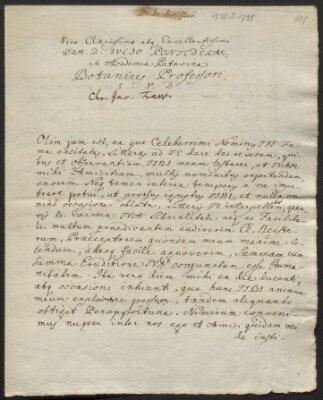 Viro Clarissimo atq Excellentissimo
Dom. D. IVLIO PONTEDERAE,
in Academia Patavina
Botanices Professori
S. P. D.
Chr. Jac. Trew.
Olim jam est, ex quo Celeberrimi Nominis TVI Fa-
ma excitatus, Litteras ad TE dare decreveram, qui-
bus et Observantiam TIBI meam testarer, et
mihi Amicitiam, multis nominibus expetendam
Neq tamen interea temporis a me im-
petrare potui, ut prorsus ignotus TIBI, et nulla om-
nino occasione oblata, Litteris TE interpellarem, quam-
vis de eximia TVA Liberalitate aeq ac Facilita-
te multum praedicantem audiverim Cl. Heiste-
rum, Praeceptorem quondam meum maxime co-
lendum, adeoq facile agnoverim, Summam cum
summa Eruditione TVA conjunctam esse Huma-
nitatem. Ubi vero diem mihi ex die
atq occasioni inhianti, qua hunc TIBI animum
meum explorare possem, tandem aliquando
obtigit Peropportuna. Nimirum conveni-
mus nuper inter nos ego et Amici quidam mei
de insti-